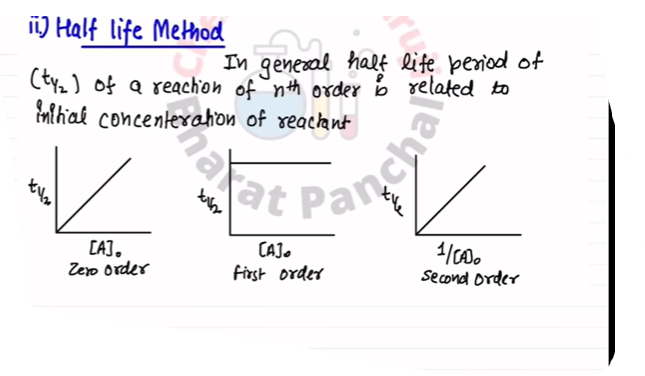 ii.) Half life Method
In general half life period of
(t1/2) of a reaction of nth order is related to
initial concenteration of reactant
t1/2
[A]₀
Zero order
t1/2
[A]₀
first order
t1/2
1/[A]₀
Second Order
Bharat Panchal